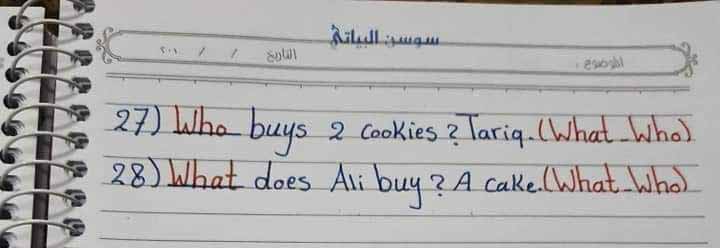 سوسن البياتي
الموضوع : التاريخ / / ٢٠١
27) Who buys 2 cookies ? Tariq. (What - Who)
28) What does Ali buy ? A cake. (What - Who)